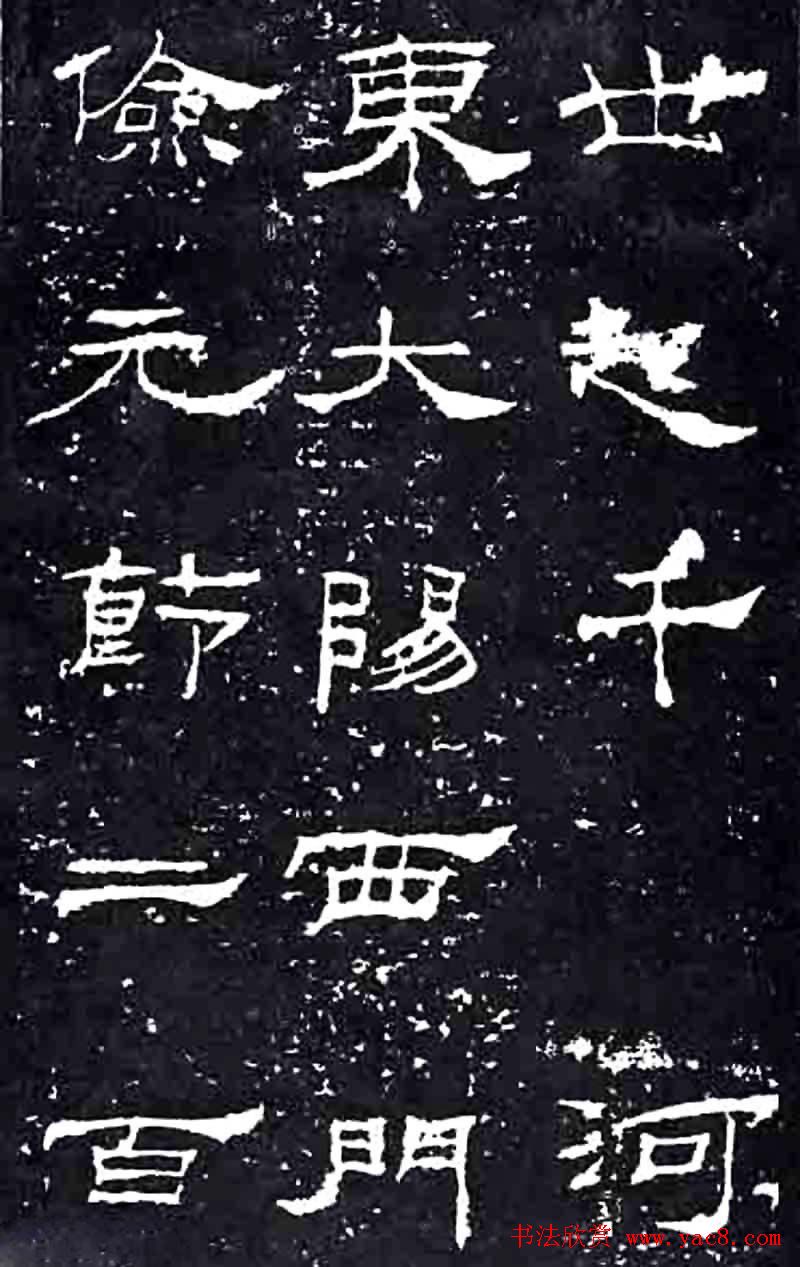 世起千 河
東大陽西門
儉元節二百
书法欣赏 www.yac8.com